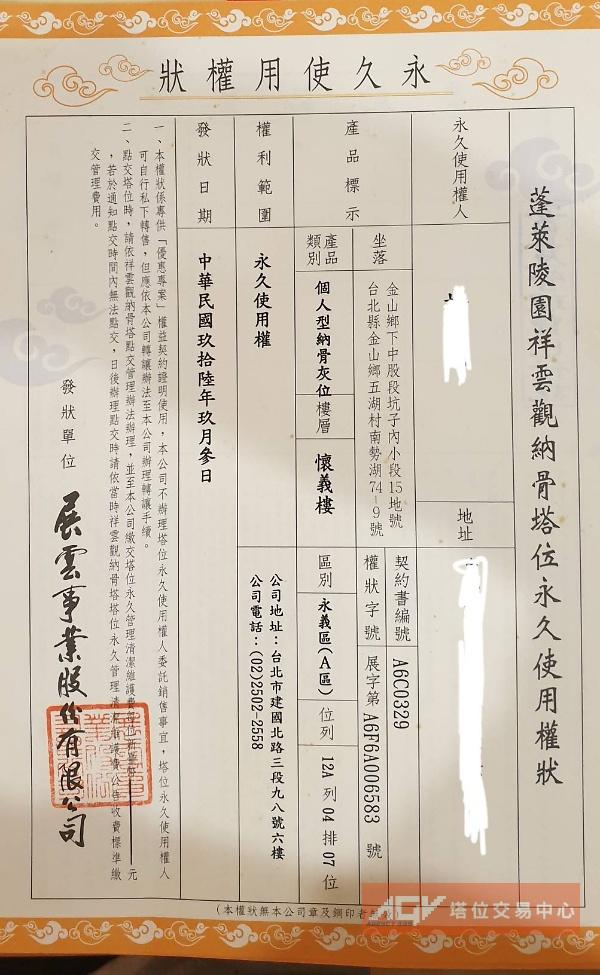 永久使用權狀
蓬萊陵園祥雲觀納骨塔位永久使用權狀
永久使用權人
地址
產品標示
坐落
金山鄉下中股段坑子內小段15地號
台北縣金山鄉五湖村南勢湖74-9號
契約書編號
A6C0329
權狀字號
展字第A6F6A006583號
產品類別
個人型納骨灰位
樓層
懷義樓
區別
永義區(A區)
位列
12A列04排07位
權利範圍
永久使用權
公司地址：台北市建國北路三段九八號六樓
公司電話：(02)2502-2558
發狀日期
中華民國玖拾陸年玖月參日
一、本權狀係專供「優惠專案」權益契約證明使用，本公司不辦理塔位永久使用權人委託銷售事宜，塔位永久使用權人
可自行私下轉售，但應依本公司轉讓辦法至本公司辦理轉讓手續。
二、點交塔位時，請依祥雲觀納骨塔點交管理辦法辦理，並至本公司繳交塔位永久管理清潔維護費
元
，若於通知點交時間內無法點交，日後辦理點交時請依當時祥雲觀納骨塔塔位永久管理清潔維護費公告收費標準繳
交管理費用。
發狀單位
展雲事業股份有限公司
(本權狀無本公司章及鋼印者無效)
ACV 塔位交易中心